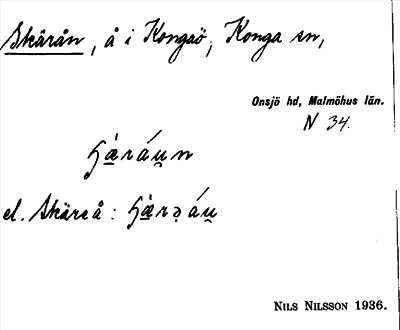 Skärån, å i Kongaö, Konga sn,
Onsjö hd, Malmöhus län.
N 34.
ɧæ̀ráu̯n
el. Skäreå: ɧæ̀rə̣áu̯
NILS NILSSON 1936.